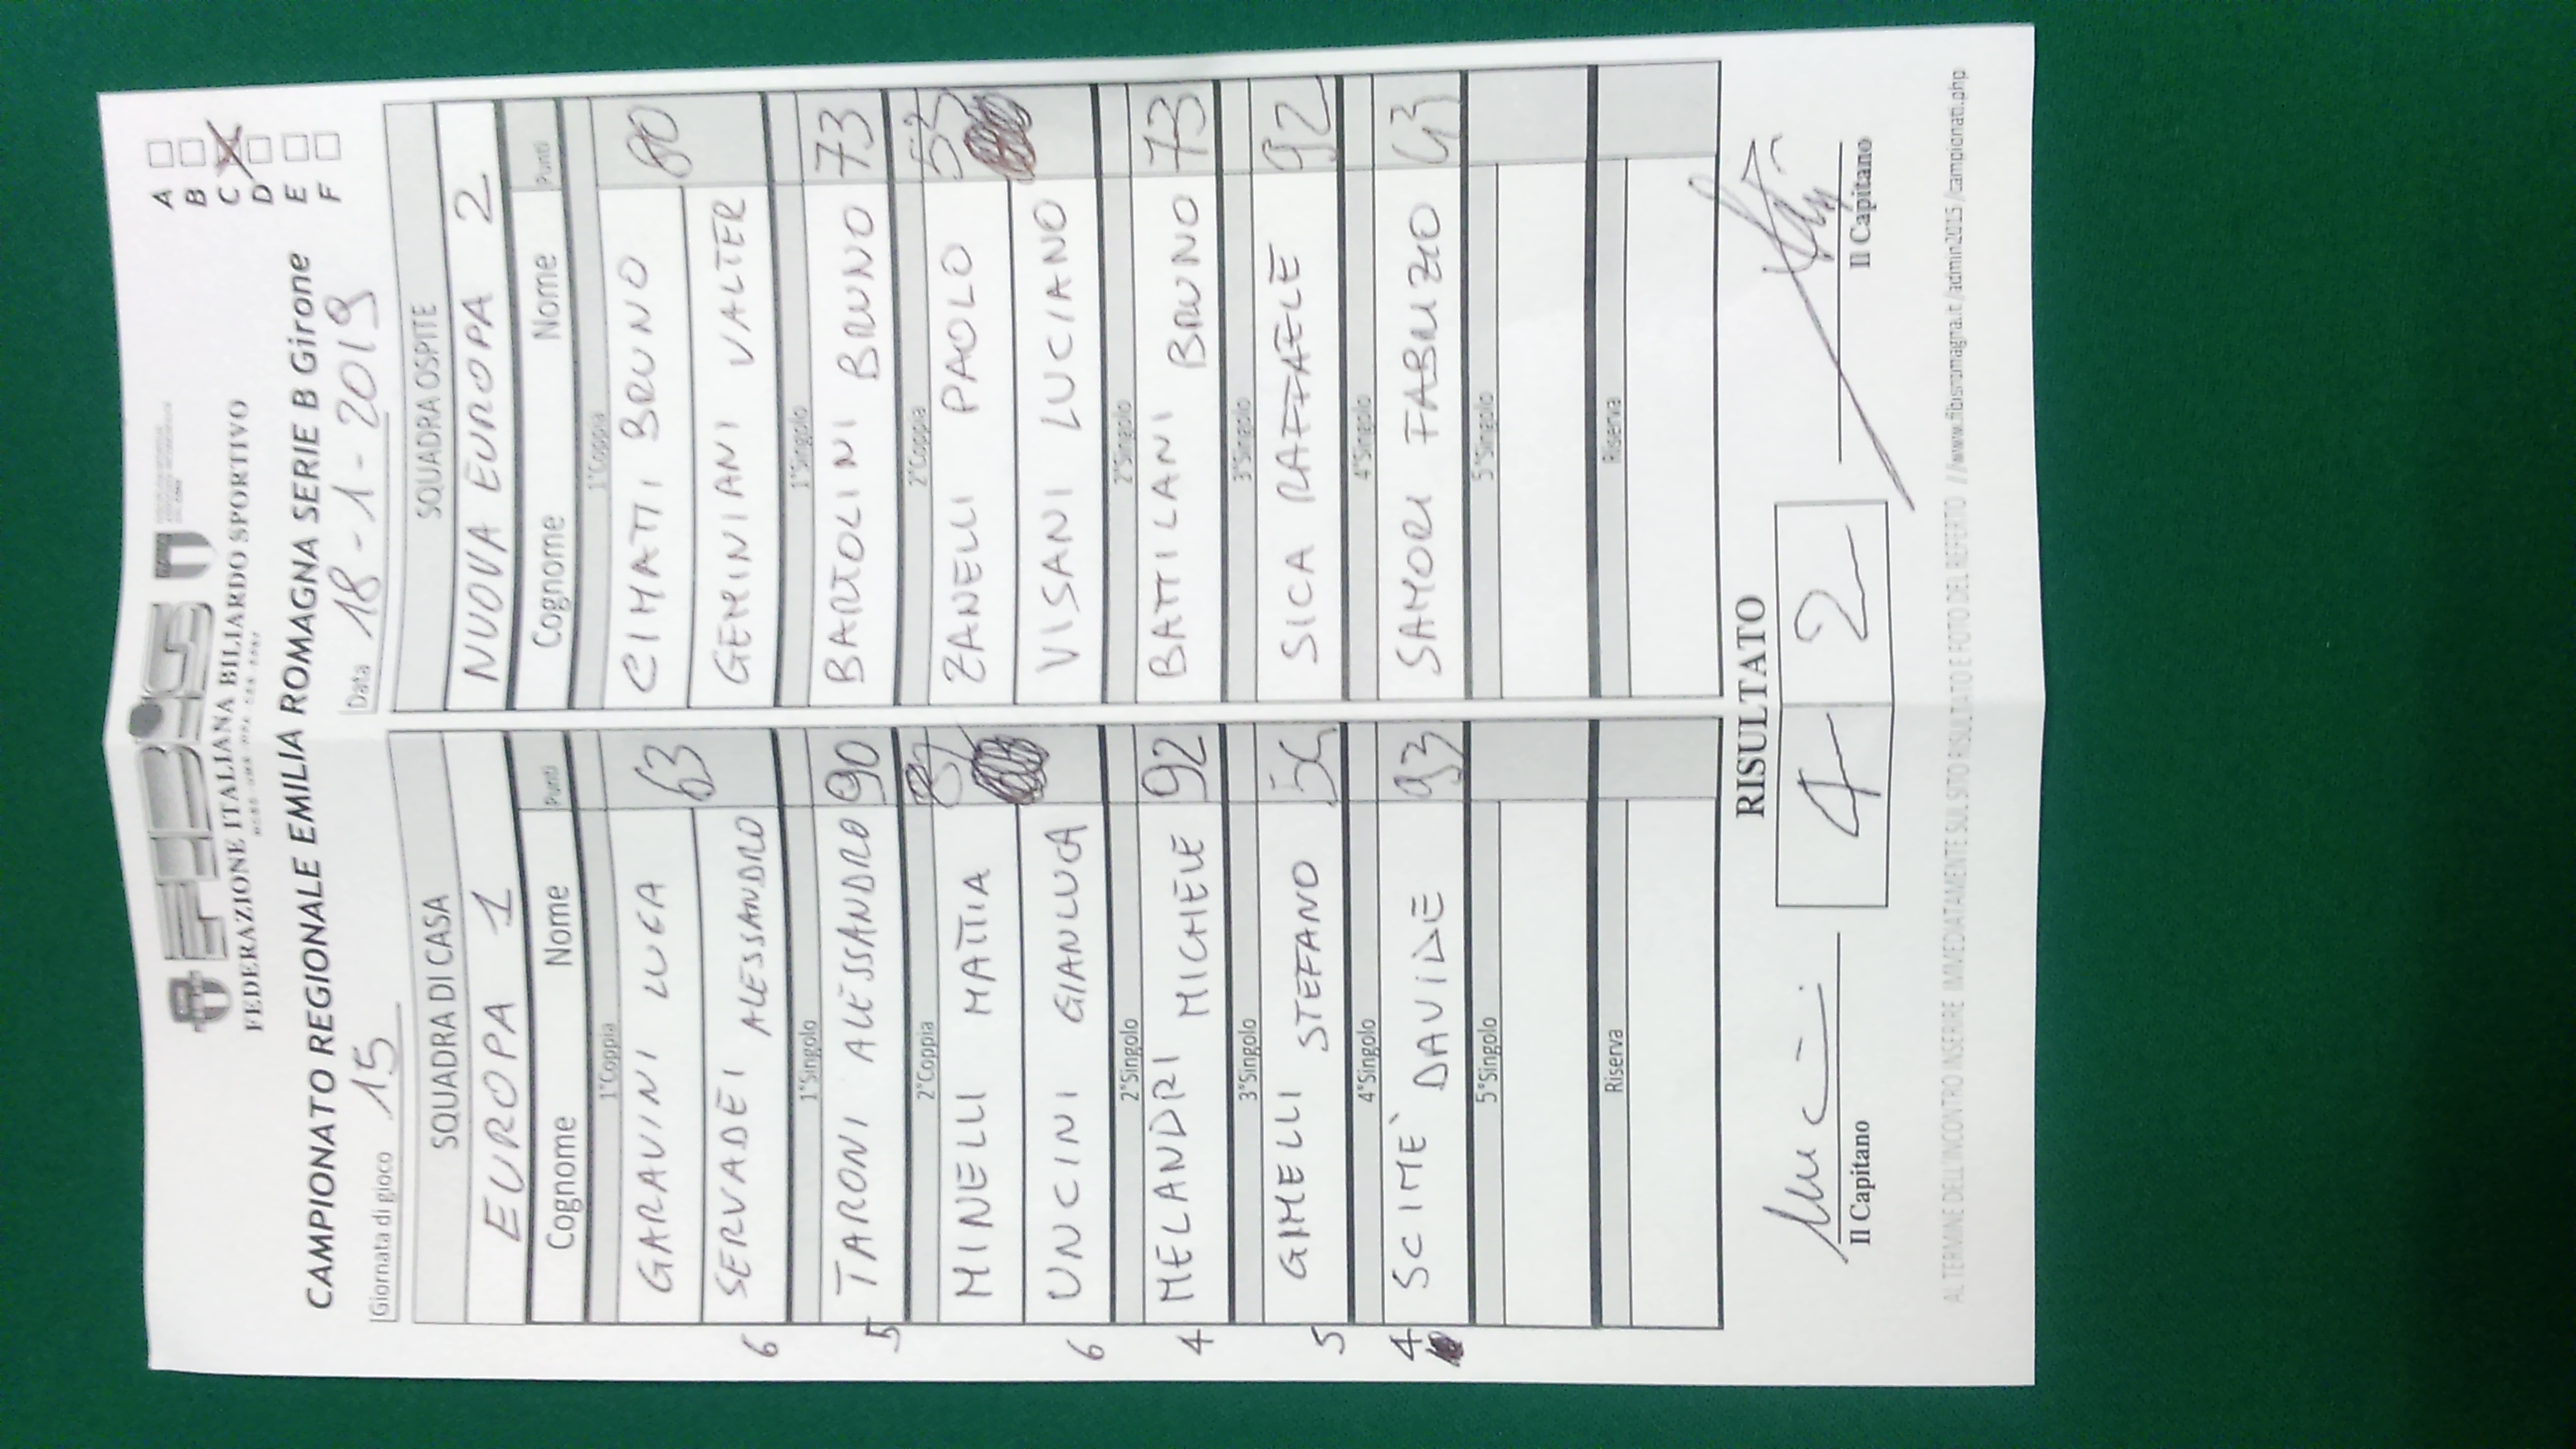 FIBiS
FEDERAZIONE ITALIANA BILIARDO SPORTIVO
CAMPIONATO REGIONALE EMILIA ROMAGNA SERIE B Girone
A
B
C
D
E
F
Giornata di gioco 15 Data 18-1-2019
SQUADRA DI CASA SQUADRA OSPITE
EUROPA 1 NUOVA EUROPA 2
Cognome Nome Punti Cognome Nome Punti
1°Coppia 1°Coppia
GARAVINI LUCA 63 CIMATTI BRUNO 80
6 SERVADEI ALESSANDRO GEMINIANI VALTER
1°Singolo 1°Singolo
5 TARONI ALESSANDRO 90 BARTOLINI BRUNO 73
2°Coppia 2°Coppia
MINELLI MATTIA ZANELLI PAOLO
6 UNCINI GIANLUCA VISANI LUCIANO
2°Singolo 2°Singolo
4 MELANDRI MICHELE 92 BATTILANI BRUNO 73
3°Singolo 3°Singolo
5 GIMELLI STEFANO SICA RAFFAELE 92
4°Singolo 4°Singolo
4 SCIME' DAVIDE 93 SAMORI FABRIZIO
5°Singolo 5°Singolo
Riserva Riserva
RISULTATO
4 2
Il Capitano Il Capitano
AL TERMINE DELL'INCONTRO INSERIRE IMMEDIATAMENTE SUL SITO RISULTATO E FOTO DEL REFERTO //www.fibisromagna.it/admin2015/campionati.php